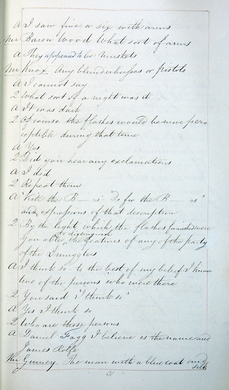 A I saw five or six with arms
Mr Baron Wood What sort of arms
A They appeared to be muskets
Mr Knox Any blunderbusses or pistols
A I cannot say
Q What sort of a night was it
A It was dark
Q Of course the flashes would be more perc
eptible during that time
A Yes
Q Did you hear any exclamations
A I did
Q Repeat them
A "Kill the B— is" "To fire the B— is"
and expressions of that description
Q By the light which the flashes furnished were
You able to distinguish the features of any of the party
of the Smugglers
A I think so to the best of my belief I knew
two of the persons who were there
Q You said "I think so"
A Yes I think so
Q Who are those persons
A Daniel Fagg I believe is the name and
James Rolfe
Mr Gurney The man with a blue coat on